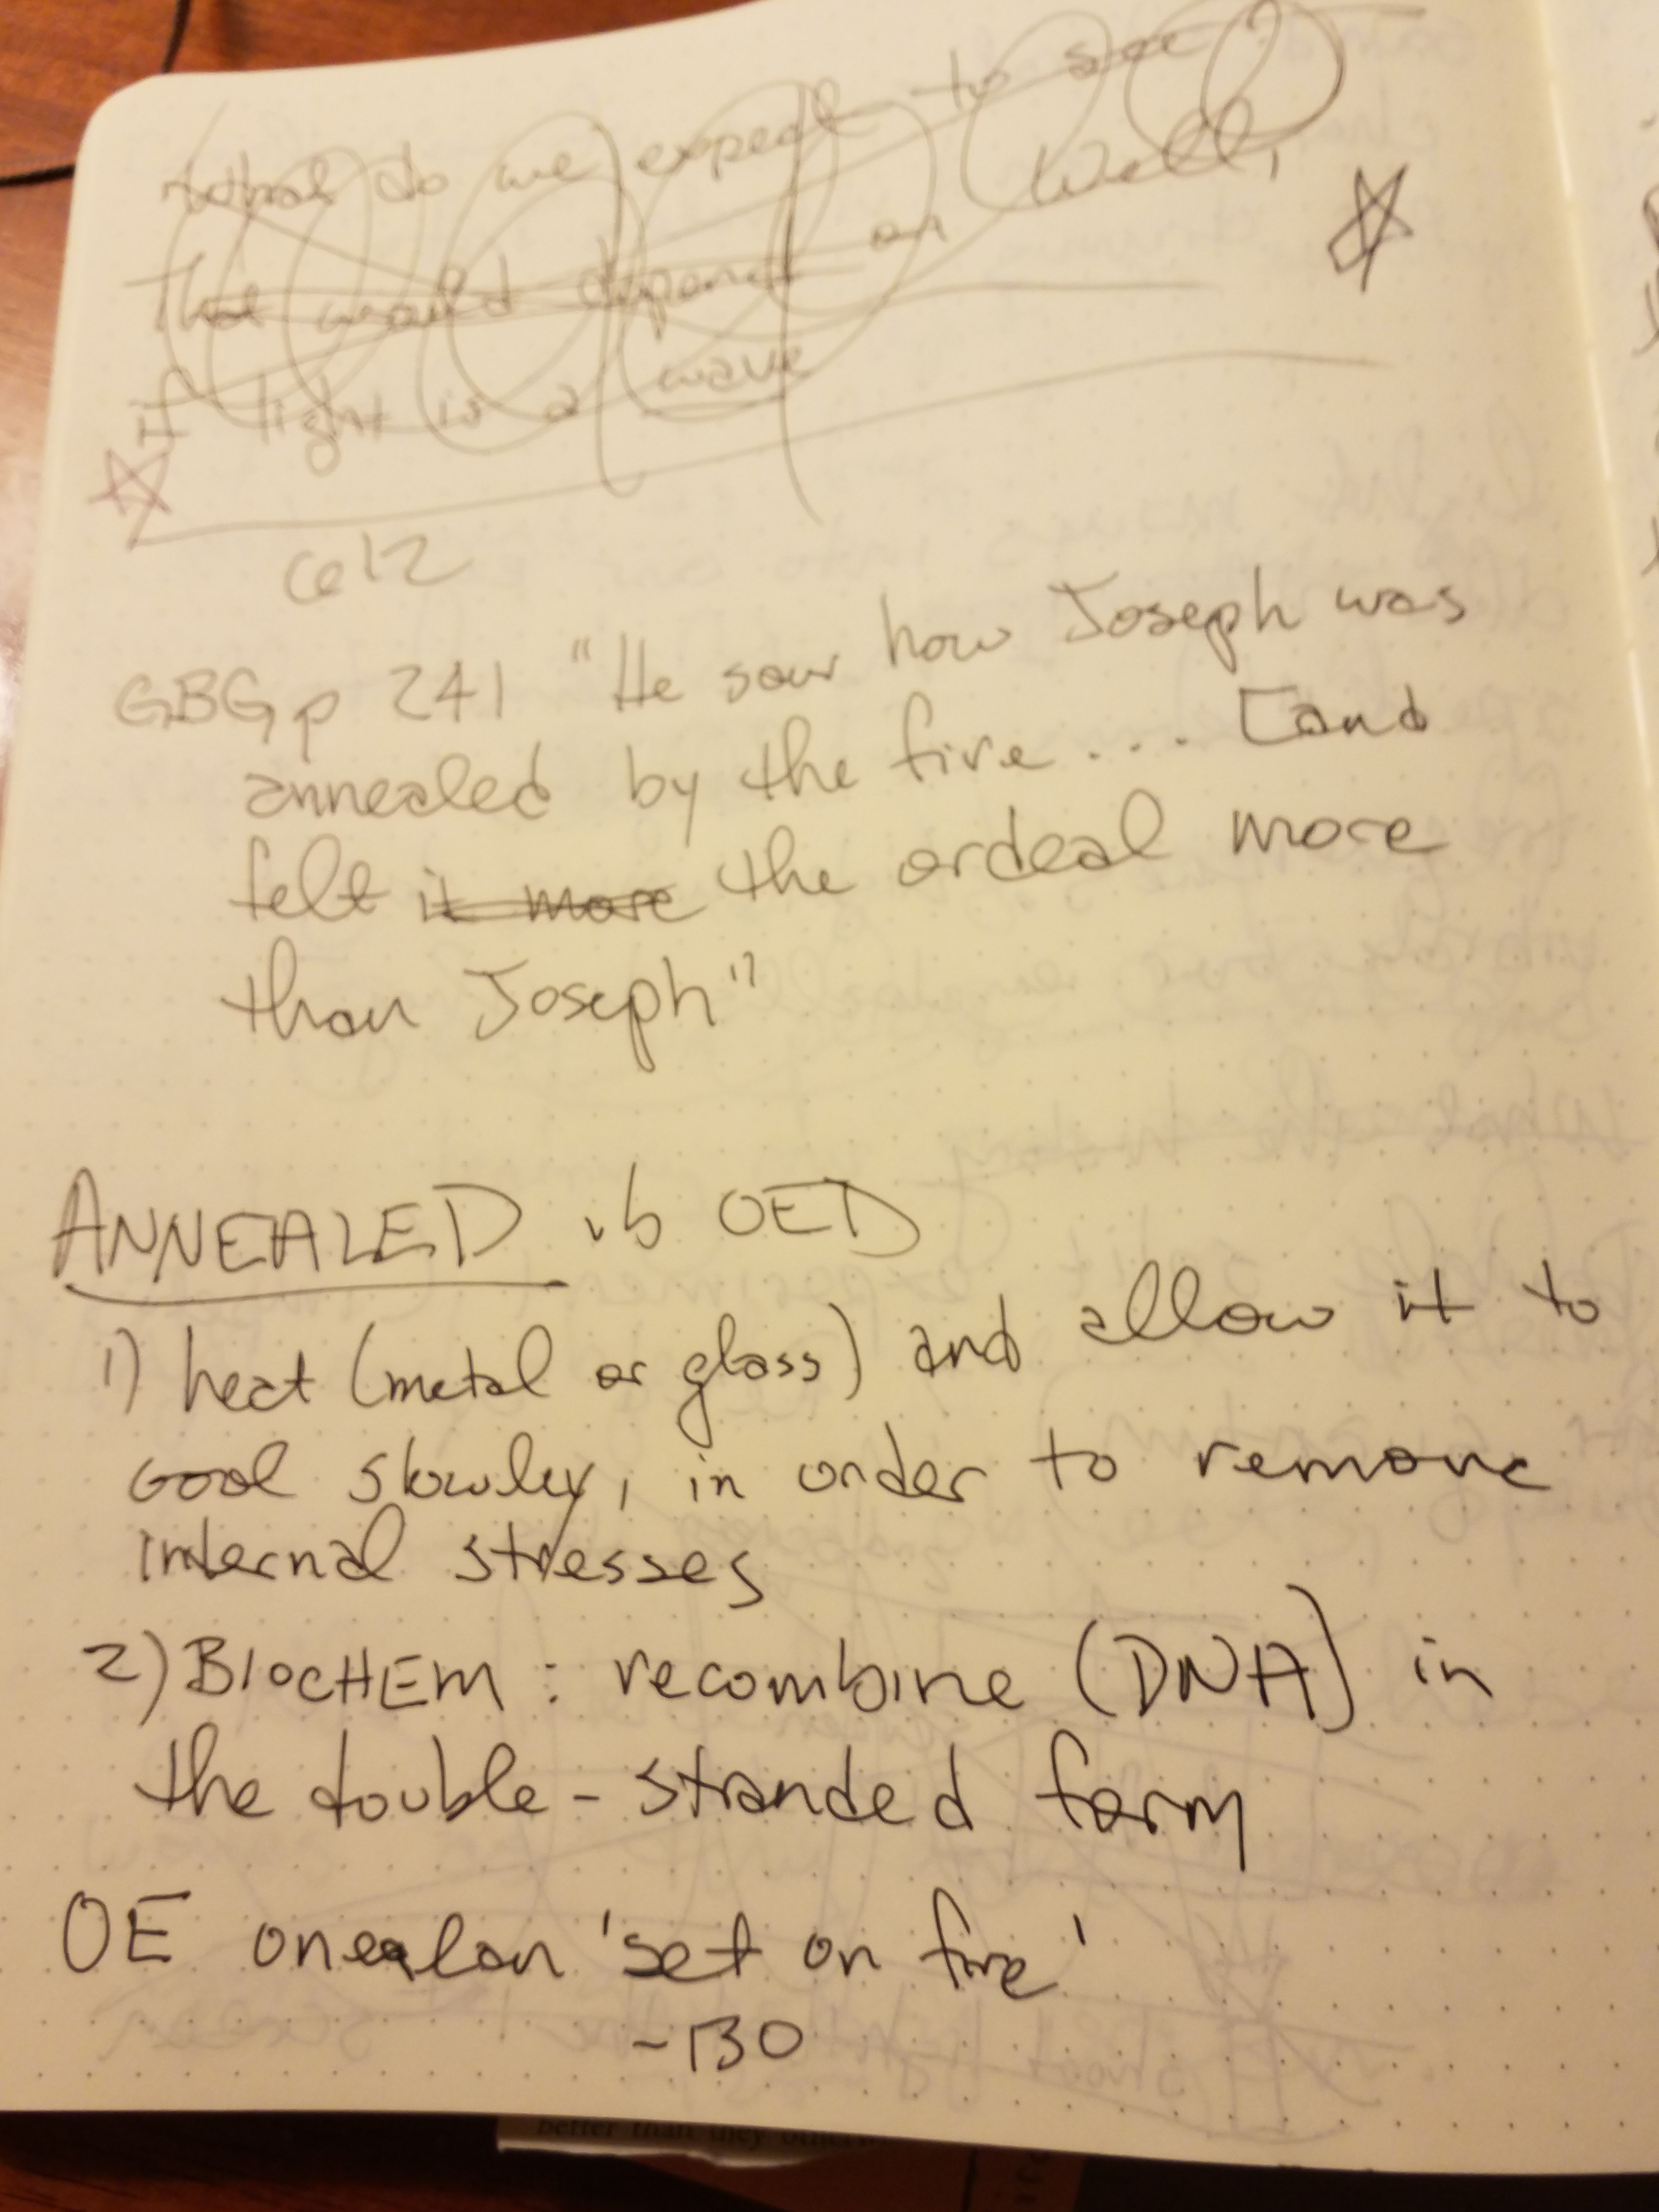 What do we expect to see?
Well,
That would depend on
if light is a wave
GBG p 241 "He saw how Joseph was
annealed by the fire.... [and
felt it more the ordeal more
than Joseph"
ANNEALED OED
1) heat (metal or glass) and allow it to
cool slowley, in order to remove
internal stresses
2) BIOCHEM: recombine (DNA) in
the double-stranded form
OE onealan 'set on fire'
better than they